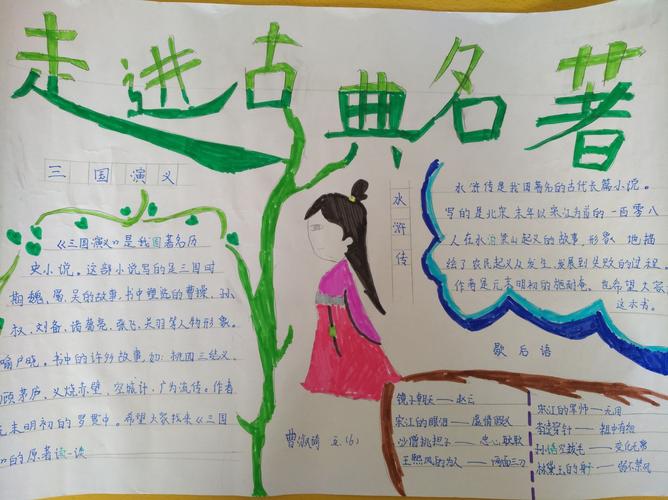 走进古典名著
三国演义
《三国演义》是我国著名历
史小说。这部小说写的是三国时
期魏、蜀、吴的故事,书中塑造的曹操、孙
权、刘备、诸葛亮、张飞、关羽等人物形象。
喻户晓。书中的许多故事,如:桃园三结义、
顾茅庐、火烧赤壁、空城计,广为流传。作者
元末明初的罗贯中。希望大家找来《三国
的原著读一读
水浒传
水浒传是我国著名的古代长篇小说。
写的是北宋末年以宋江为首的一百零八
人在水泊梁山起义的故事,形象地描
绘了农民起义从发生、发展到失败的过程。
作者是元末明初的施耐庵。也希望大家
歇后语
镜子朝天——
宋江的眼泪——虚情假义
沙僧挑担子——忠心耿耿
王熙凤的为人——两面三刀
宋江的军师——无用
李逵穿针——粗中有细
孙悟空拔毛——变化无常
林黛玉的身子——弱不禁风
五(6)